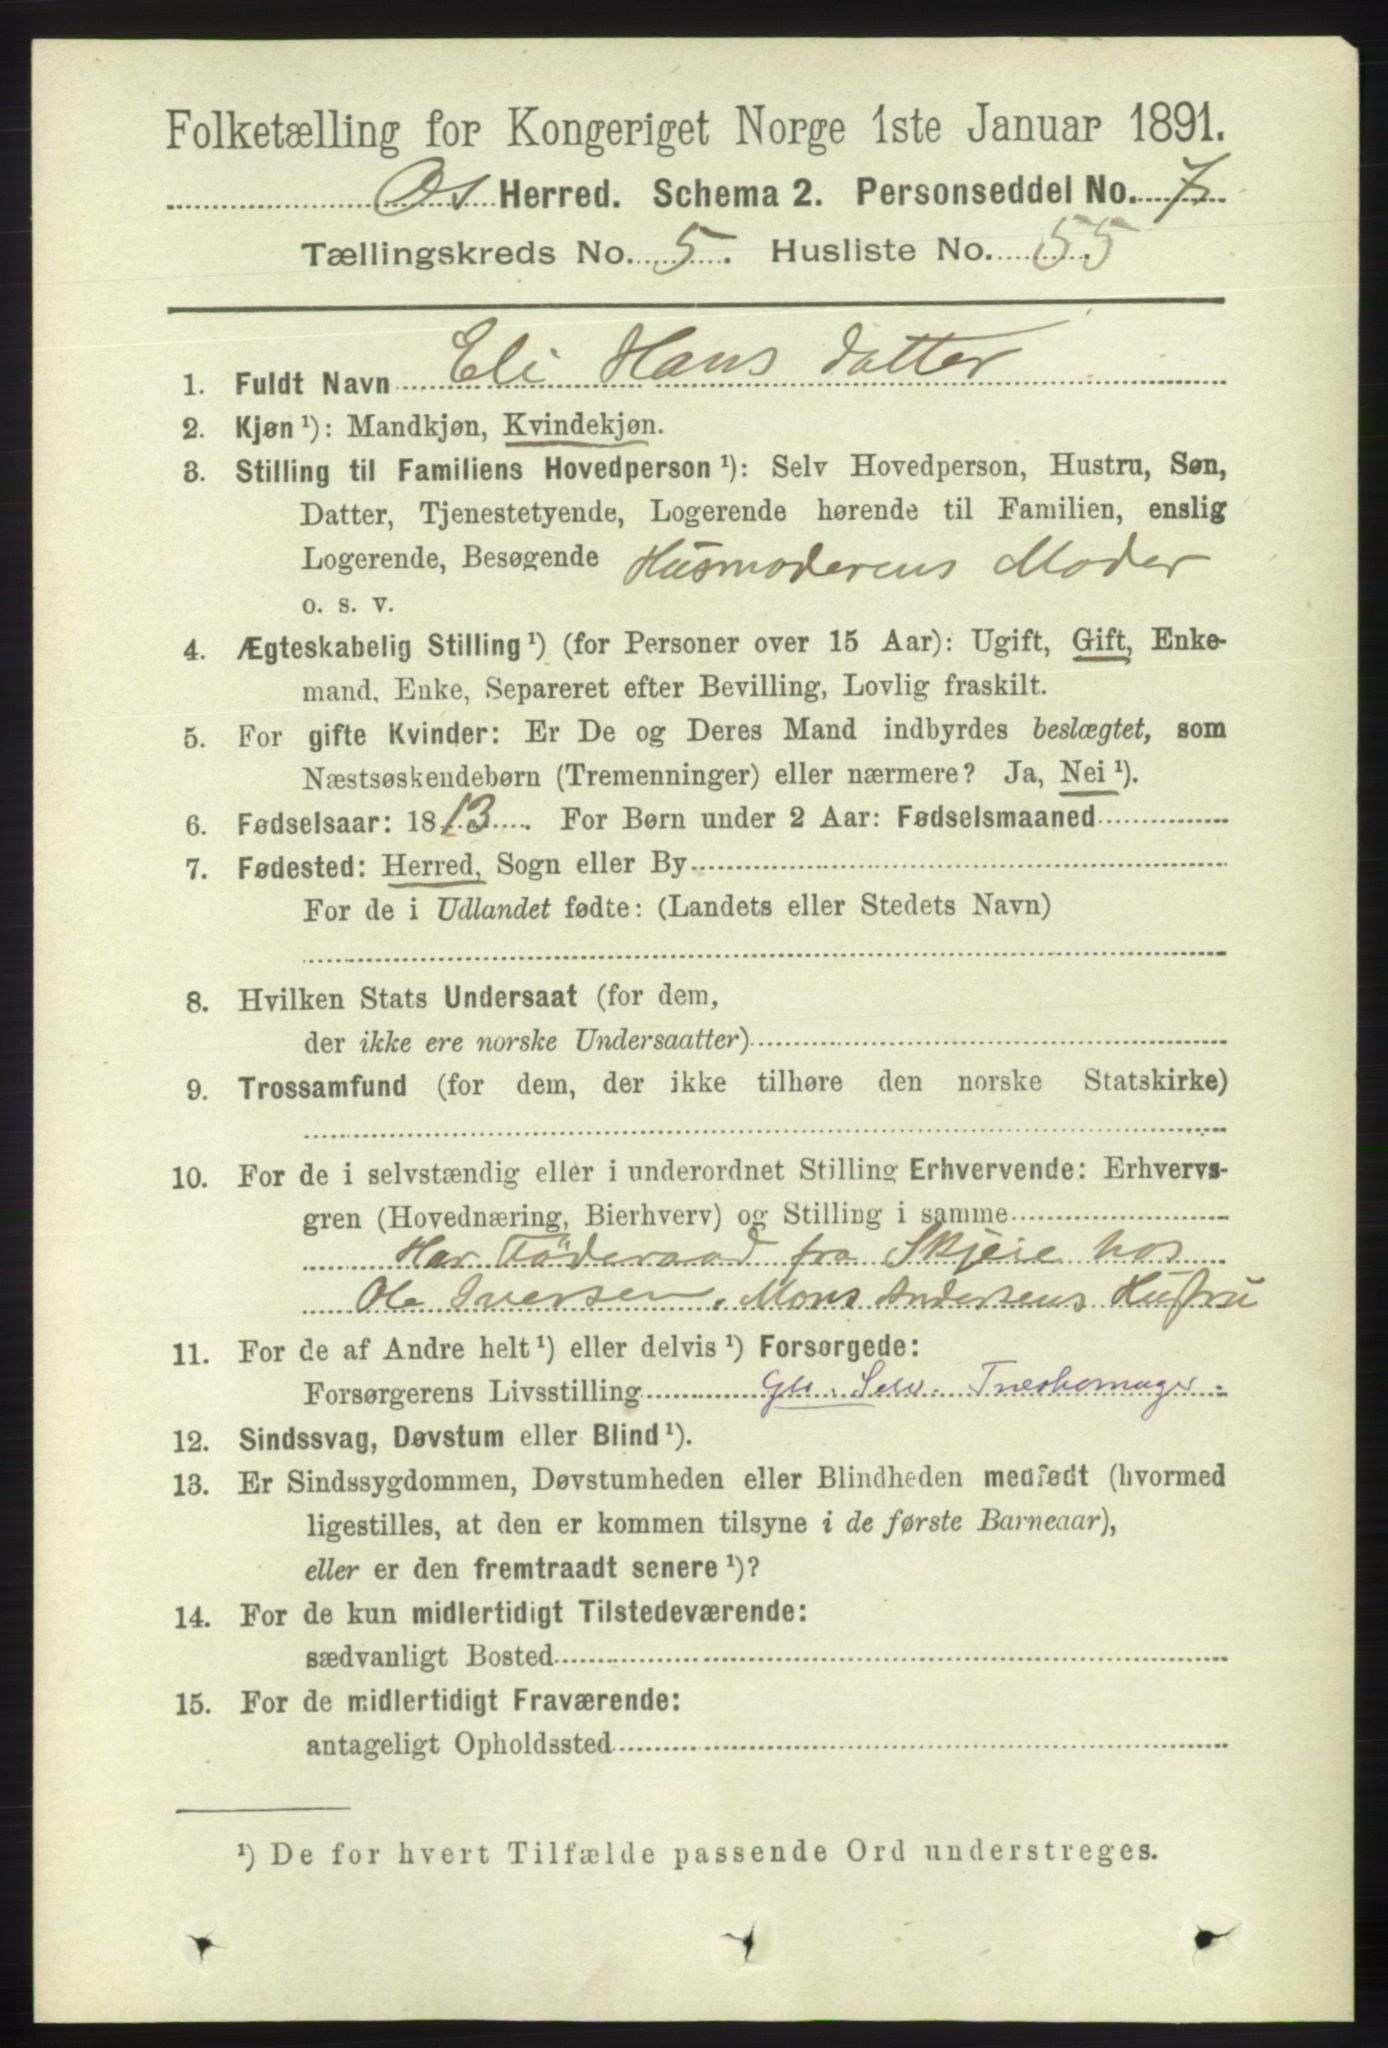 Folketælling for Kongeriget Norge 1ste Januar 1891.
Os Herred. Schema 2. Personseddel No. 7
Tællingskreds No. 5. Husliste No. 55
1. Fuldt Navn Eli Hans datter
2. Kjøn ¹): Mandkjøn, Kvindekjøn.
3. Stilling til Familiens Hovedperson ¹): Selv Hovedperson, Hustru, Søn,
Datter, Tjenestetyende, Logerende hørende til Familien, enslig
Logerende, Besøgende Husmoderens Moder
o. s. v.
4. Ægteskabelig Stilling ¹) (for Personer over 15 Aar): Ugift, Gift, Enke-
mand, Enke, Separeret efter Bevilling, Lovlig fraskilt.
5. For gifte Kvinder: Er De og Deres Mand indbyrdes beslægtet, som
Næstsøskendebørn (Tremenninger) eller nærmere? Ja, Nei ¹).
6. Fødselsaar: 1813. For Børn under 2 Aar: Fødselsmaaned
7. Fødested: Herred, Sogn eller By
For de i Udlandet fødte: (Landets eller Stedets Navn)
8. Hvilken Stats Undersaat (for dem,
der ikke ere norske Undersaatter)
9. Trossamfund (for dem, der ikke tilhøre den norske Statskirke)
10. For de i selvstændig eller i underordnet Stilling Erhvervende: Erhvervs-
gren (Hovednæring, Bierhverv) og Stilling i samme
Har Föderaad fra Skjeie hos
Ole Iversen. Mons Andersens Hustru
11. For de af Andre helt ¹) eller delvis ¹) Forsørgede:
Forsørgerens Livsstilling Gu. Selv.
12. Sindssvag, Døvstum eller Blind ¹).
13. Er Sindssygdommen, Døvstumheden eller Blindheden medfødt (hvormed
ligestilles, at den er kommen tilsyne i de første Barneaar),
eller er den fremtraadt senere ¹)?
14. For de kun midlertidigt Tilstedeværende:
sædvanligt Bosted
15. For de midlertidigt Fraværende:
antageligt Opholdssted
¹) De for hvert Tilfælde passende Ord understreges.